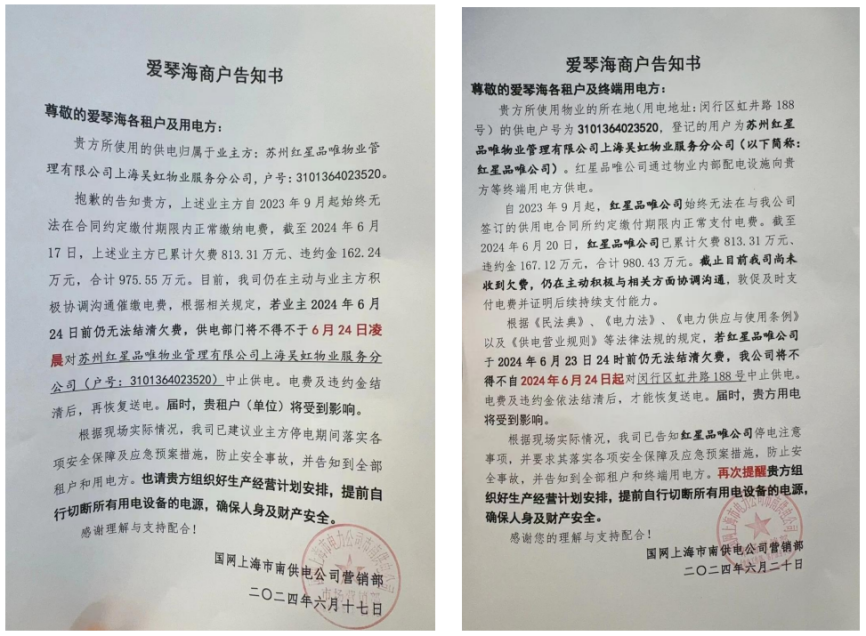 爱琴海商户告知书
尊敬的爱琴海各租户及用电方：
贵方所使用的供电归属于业主方：苏州红星品唯物业管
理有限公司上海吴虹物业服务分公司，户号：3101364023520。
抱歉的告知贵方，上述业主方自 2023 年 9 月起始终无
法在合同约定缴付期限内正常缴纳电费，截至 2024 年 6 月
17 日，上述业主方已累计欠费 813.31 万元、违约金 162.24
万元，合计 975.55 万元。目前，我司仍在主动与业主方积
极协调沟通催缴电费，根据相关规定，若业主 2024 年 6 月
24 日前仍无法结清欠费，供电部门将不得不于 6 月 24 日凌
晨对苏州红星品唯物业管理有限公司上海吴虹物业服务分
公司（户号：3101364023520）中止供电。电费及违约金结
清后，再恢复送电。届时，贵租户（单位）将受到影响。
根据现场实际情况，我司已建议业主方停电期间落实各
项安全保障及应急预案措施，防止安全事故，并告知到全部
租户和用电方。也请贵方组织好生产经营计划安排，提前自
行切断所有用电设备的电源，确保人身及财产安全。
感谢理解与支持配合！
国网上海市南供电公司营销部
二〇二四年六月十七日
爱琴海商户告知书
尊敬的爱琴海各租户及终端用电方：
贵方所使用物业的所在地（用电地址：闵行区虹井路 188
号）的供电户号为 3101364023520，登记的用户为苏州红星
品唯物业管理有限公司上海吴虹物业服务分公司（以下简称：
红星品唯公司）。红星品唯公司通过物业内部配电设施向贵
方等终端用电方供电。
自 2023 年 9 月起，红星品唯公司始终无法在与我公司
签订的供用电合同所约定缴付期限内正常支付电费。截至
2024 年 6 月 20 日，红星品唯公司已累计欠费 813.31 万元、
违约金 167.12 万元，合计 980.43 万元。截止目前我司尚未
收到欠费，仍在主动积极与相关方面协调沟通，敦促及时支
付电费并证明后续持续支付能力。
根据《民法典》、《电力法》、《电力供应与使用条例》
以及《供电营业规则》等法律法规的规定，若红星品唯公司
于 2024 年 6 月 23 日 24 时前仍无法结清欠费，我公司将不
得不自 2024 年 6 月 24 日起对闵行区虹井路 188 号中止供电。
电费及违约金依法结清后，才能恢复送电。届时，贵方用电
将受到影响。
根据现场实际情况，我司已告知红星品唯公司停电注意
事项，并要求其落实各项安全保障及应急预案措施，防止安
全事故，并告知到全部租户和终端用电方。再次提醒贵方组
织好生产经营计划安排，提前自行切断所有用电设备的电源，
确保人身及财产安全。
感谢您的理解与支持配合！
国网上海市南供电公司营销部
二〇二四年六月二十日